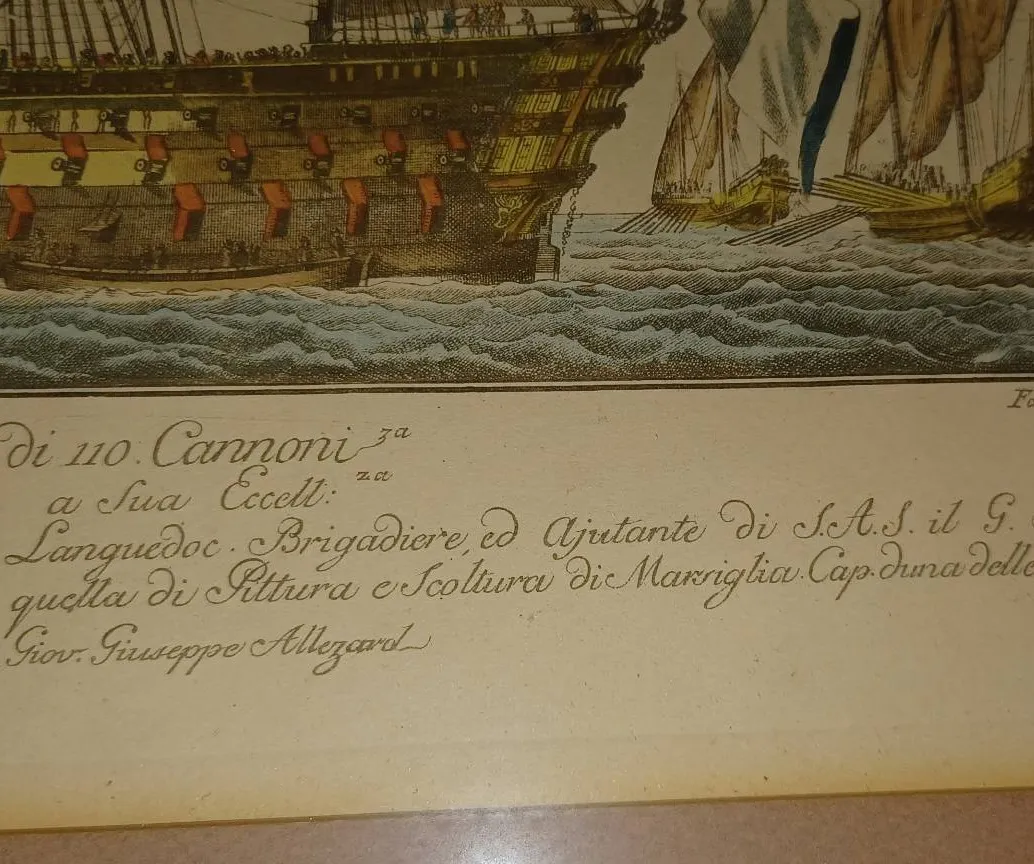 Fa
di 110. Cannoni
za
a Sua Eccell: za
Languedoc. Brigadiere, ed Ajutante di S.A.S. il G.
quella di Pittura e Scoltura di Marsiglia. Cap. duna delle
Giov. Giuseppe Allezard